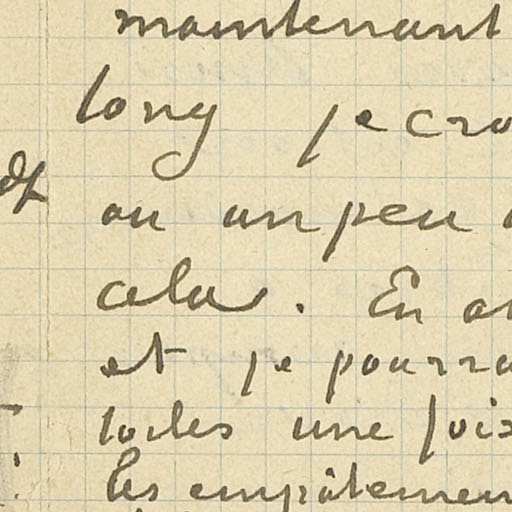 maintenant
long je cro
ou un peu
cela. En a
et je pourra
toiles une fois
les empâtemen